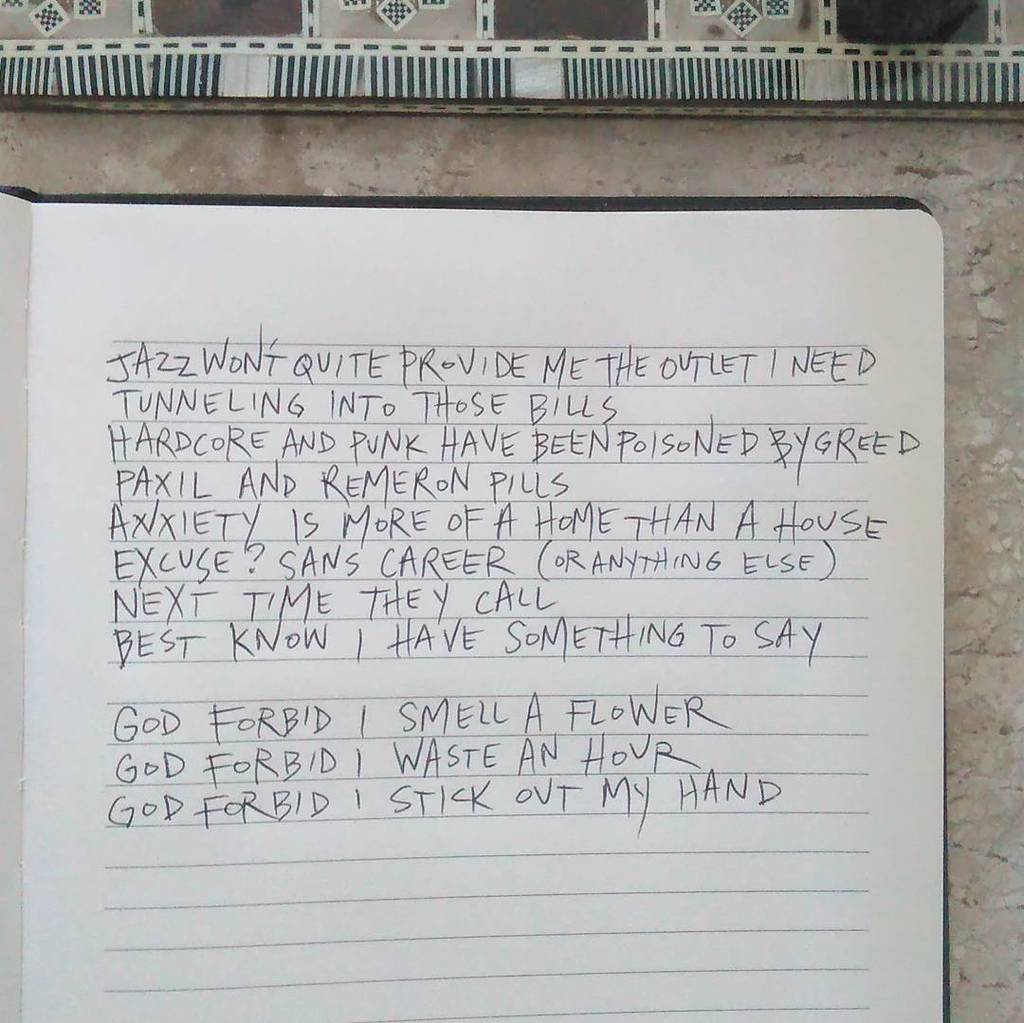 JAZZ WON'T QUITE PROVIDE ME THE OUTLET I NEED
TUNNELING INTO THOSE BILLS
HARDCORE AND PUNK HAVE BEEN POISONED BY GREED
PAXIL AND REMERON PILLS
ANXIETY IS MORE OF A HOME THAN A HOUSE
EXCUSE? SANS CAREER (OR ANYTHING ELSE)
NEXT TIME THEY CALL
BEST KNOW I HAVE SOMETHING TO SAY
GOD FORBID I SMELL A FLOWER
GOD FORBID I WASTE AN HOUR
GOD FORBID I STICK OUT MY HAND